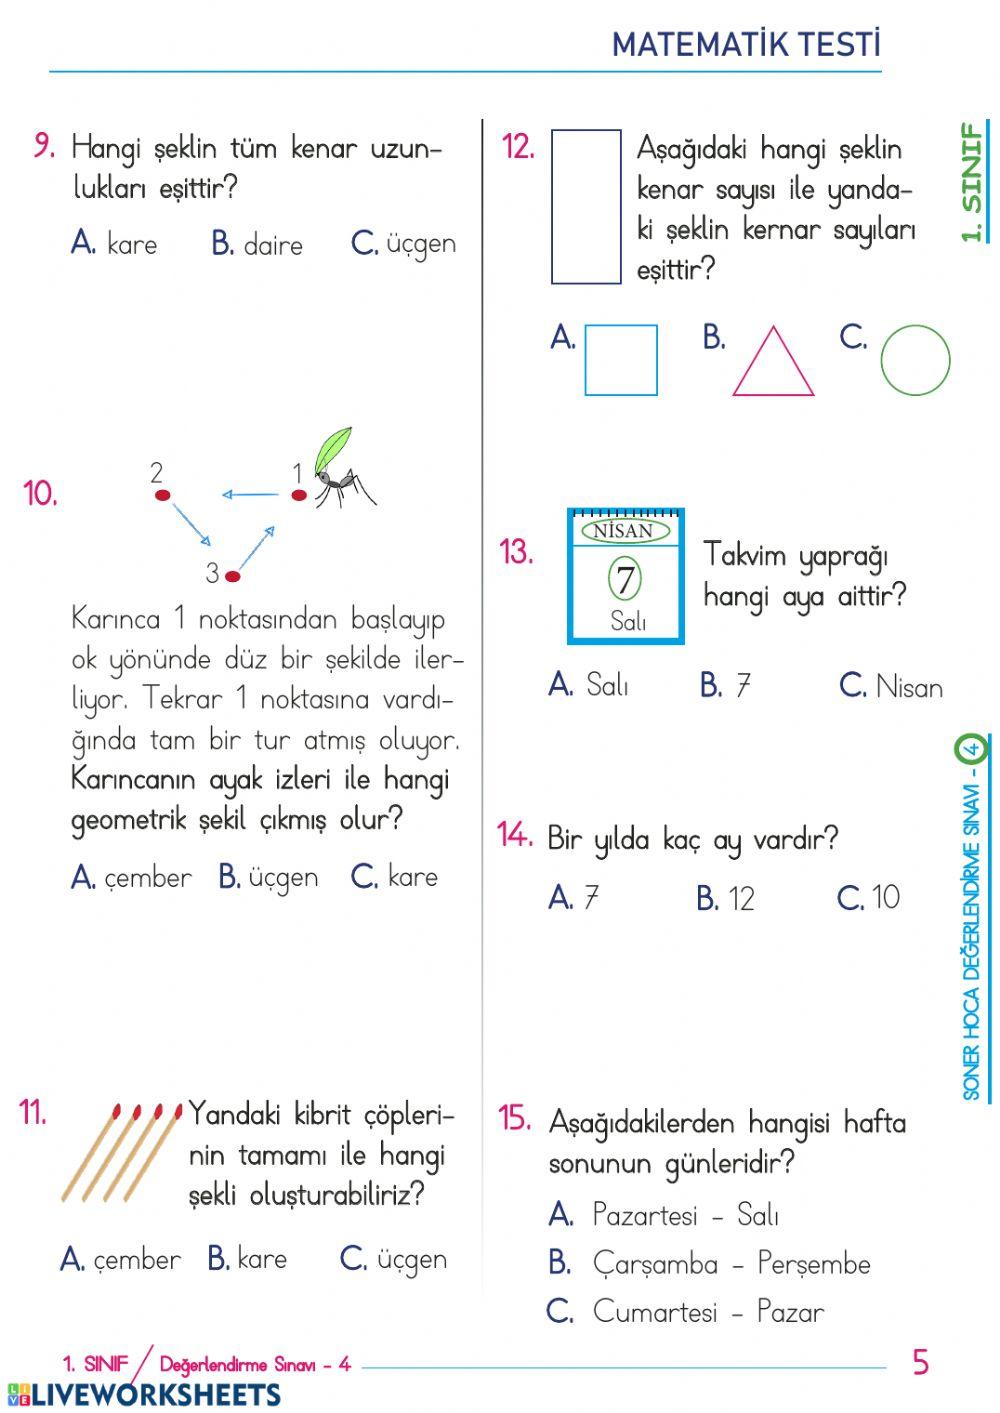 MATEMATİK TESTİ
9. Hangi şeklin tüm kenar uzun-
lukları eşittir?
A. kare B. daire C. üçgen
10.
2 1
3
Karınca 1 noktasından başlayıp
ok yönünde düz bir şekilde iler-
liyor. Tekrar 1 noktasına vardı-
ğında tam bir tur atmış oluyor.
Karıncanın ayak izleri ile hangi
geometrik şekil çıkmış olur?
A. çember B. üçgen C. kare
11. Yandaki kibrit çöpleri-
nin tamamı ile hangi
şekli oluşturabiliriz?
A. çember B. kare C. üçgen
12. Aşağıdaki hangi şeklin
kenar sayısı ile yanda-
ki şeklin kernar sayıları
eşittir?
A. B. C.
13.
NİSAN
7
Salı
Takvim yaprağı
hangi aya aittir?
A. Salı B. 7 C. Nisan
14. Bir yılda kaç ay vardır?
A. 7 B. 12 C. 10
15. Aşağıdakilerden hangisi hafta
sonunun günleridir?
A. Pazartesi - Salı
B. Çarşamba - Perşembe
C. Cumartesi - Pazar
1. SINIF
SONER HOCA DEĞERLENDİRME SINAVI - 4
1. SINIF / Değerlendirme Sınavı - 4
5
LIVE LIVEWORKSHEETS